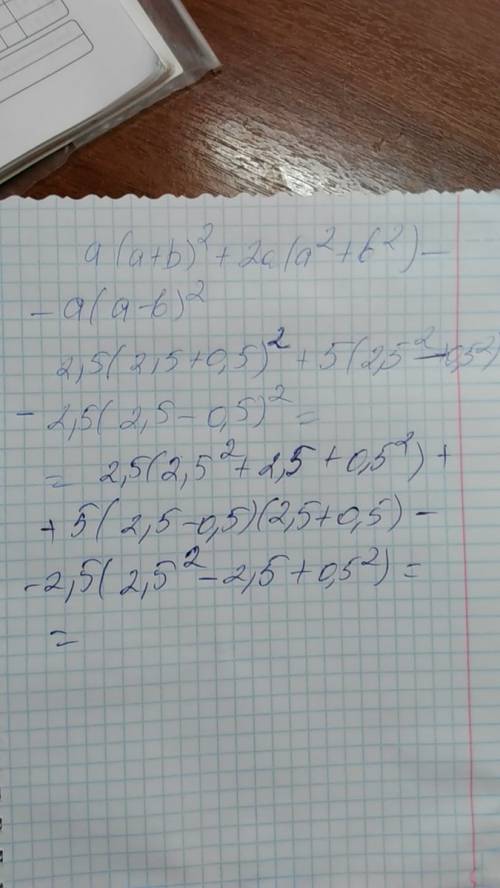 a(a+b)²+2a(a²+b²)-
-a(a-b)²
2,5(2,5+0,5)²+5(2,5²-0,5²)
-2,5(2,5-0,5)²=
= 2,5(2,5²+2,5+0,5²)+
+5(2,5-0,5)(2,5+0,5)-
-2,5(2,5²-2,5+0,5²)=
=